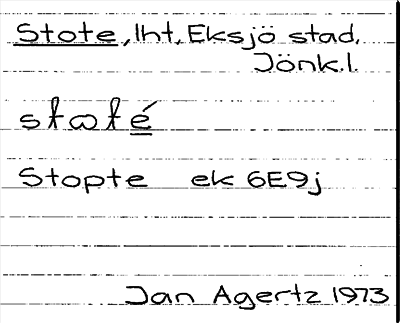 Stote, lht, Eksjö stad,
Jönk.l.
stωté
Stopte ek 6E9j
Jan Agertz 1973